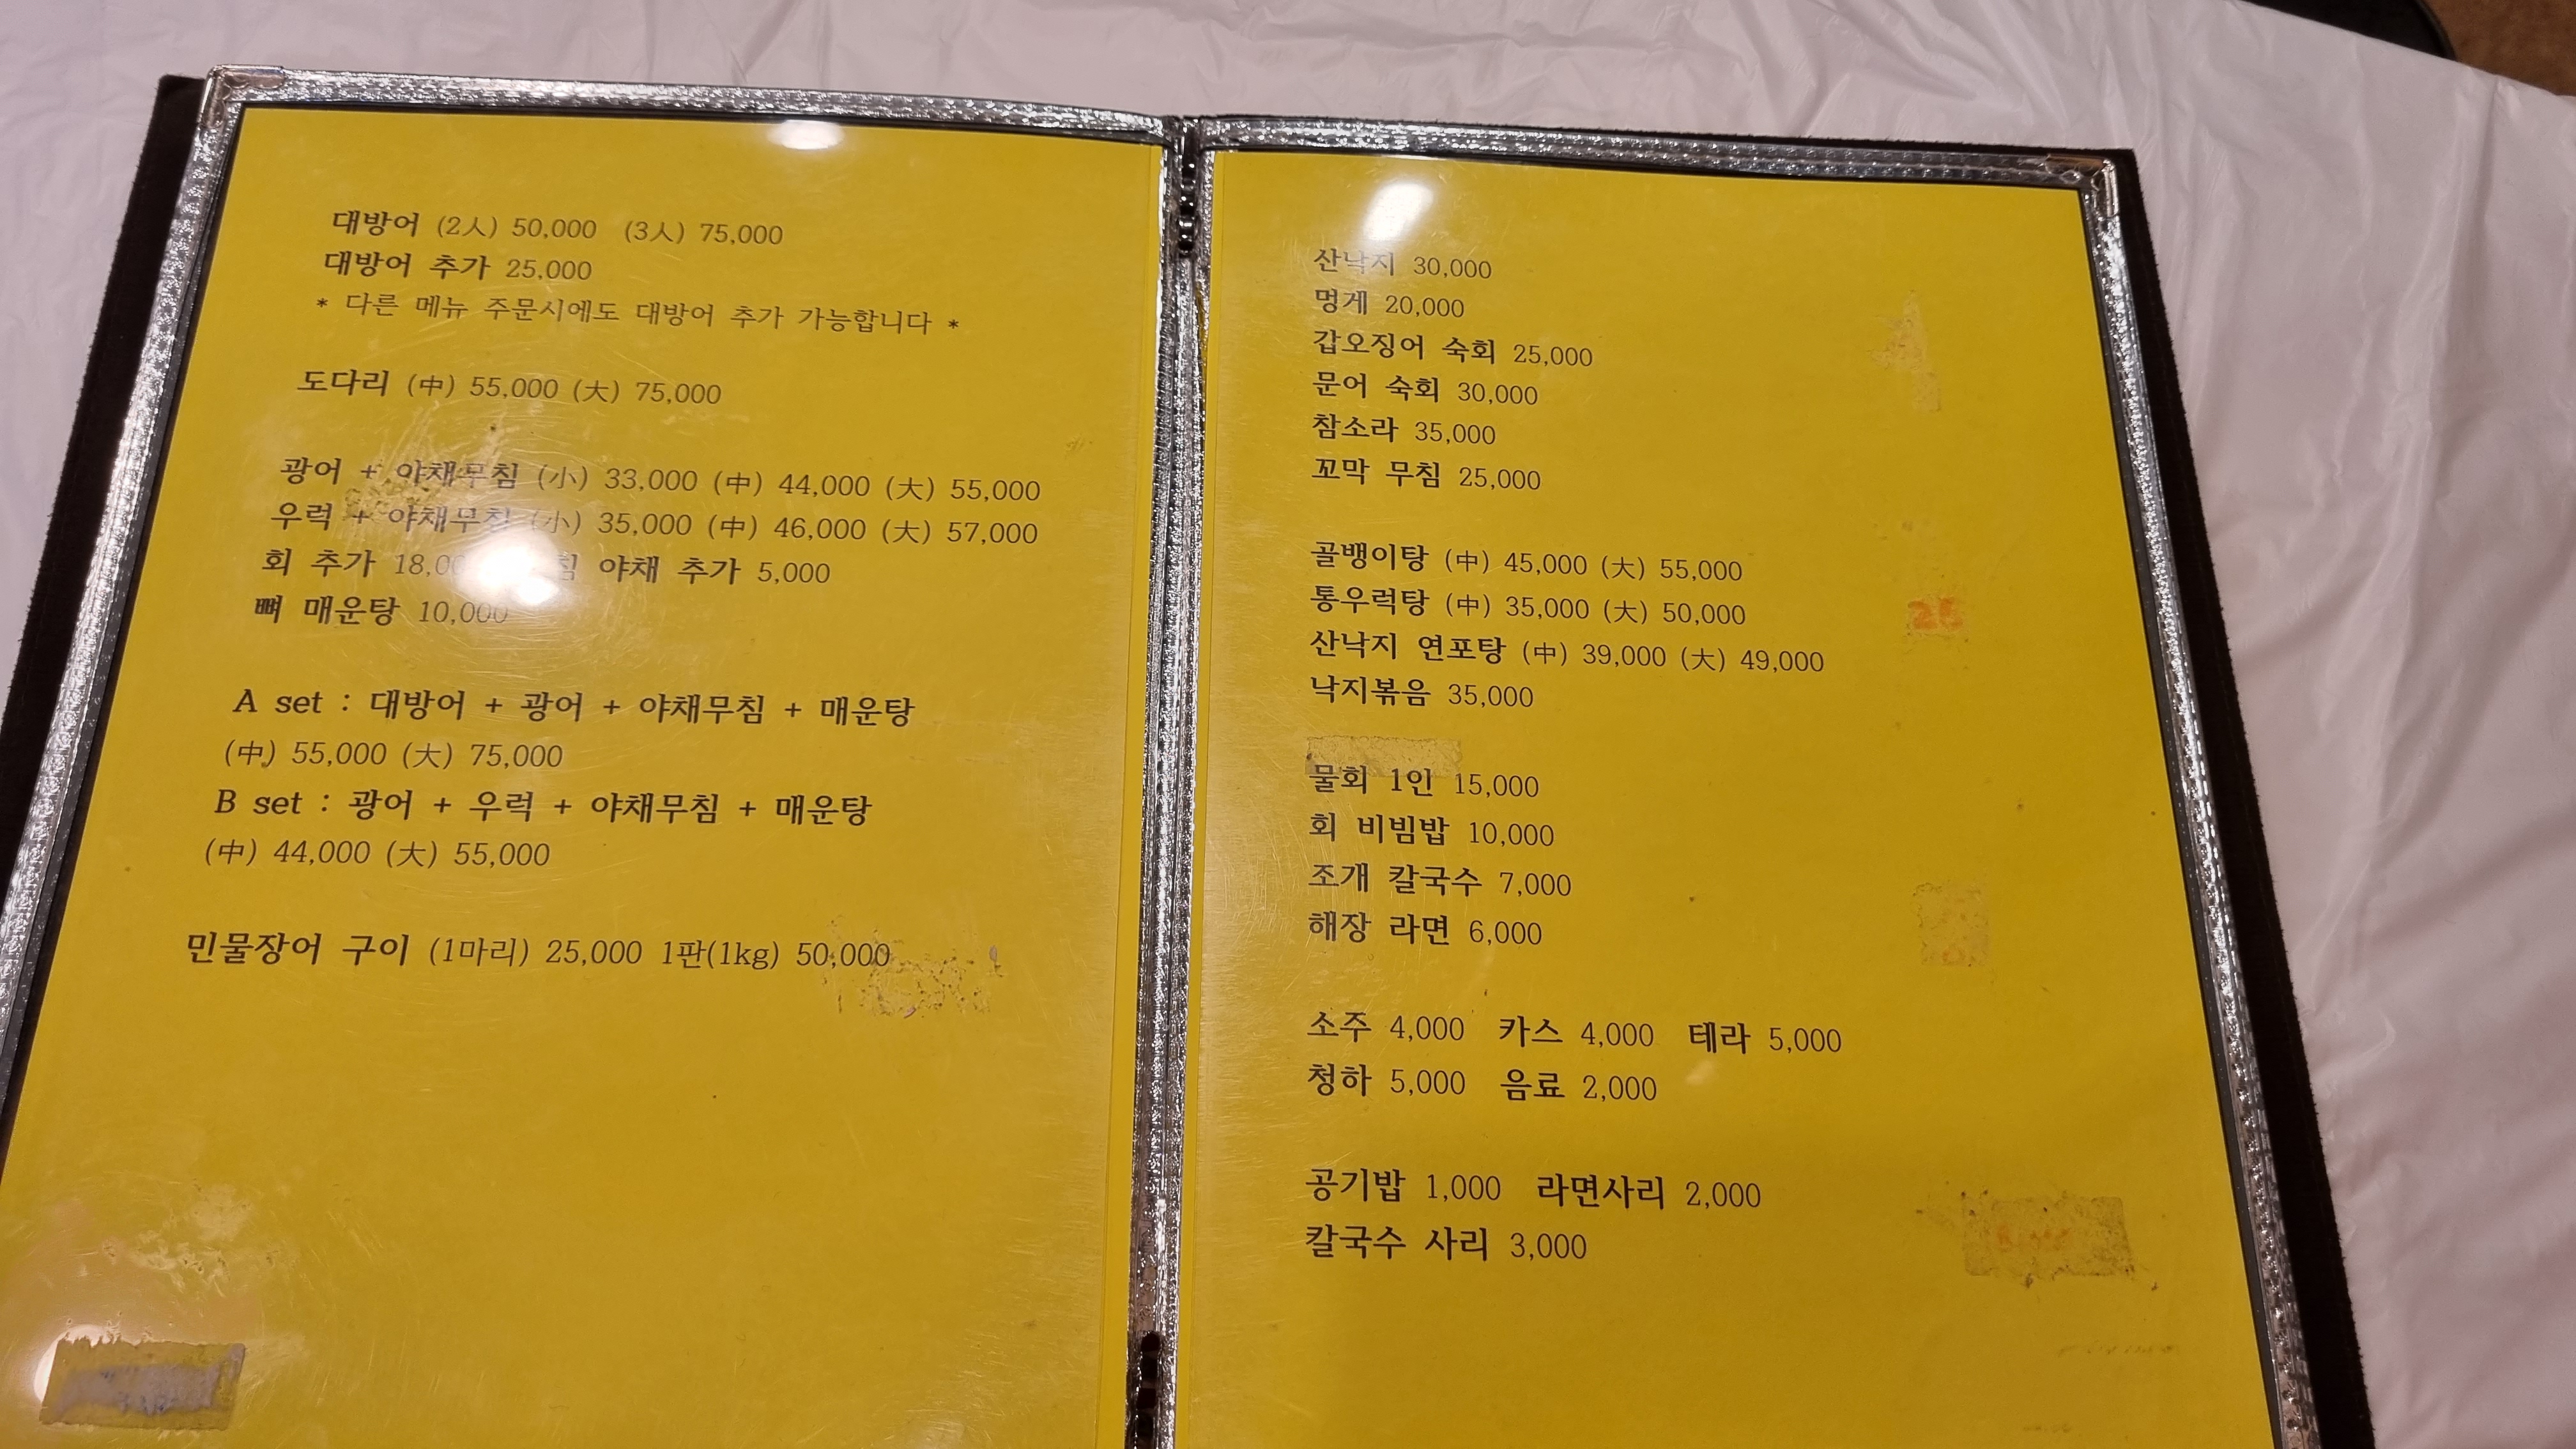 대방어 (2人) 50,000 (3人) 75,000
대방어 추가 25,000
* 다른 메뉴 주문시에도 대방어 추가 가능합니다 *
도다리 (中) 55,000 (大) 75,000
광어 + 야채무침 (小) 33,000 (中) 44,000 (大) 55,000
우럭 + 야채무침 (小) 35,000 (中) 46,000 (大) 57,000
회 추가 야채 추가 5,000
뼈 매운탕 10,000
A set : 대방어 + 광어 + 야채무침 + 매운탕
(中) 55,000 (大) 75,000
B set : 광어 + 우럭 + 야채무침 + 매운탕
(中) 44,000 (大) 55,000
민물장어 구이 (1마리) 25,000 1판(1kg) 50,000
산낙지 30,000
멍게 20,000
갑오징어 숙회 25,000
문어 숙회 30,000
참소라 35,000
꼬막 무침 25,000
골뱅이탕 (中) 45,000 (大) 55,000
통우럭탕 (中) 35,000 (大) 50,000
산낙지 연포탕 (中) 39,000 (大) 49,000
낙지볶음 35,000
물회 1인 15,000
회 비빔밥 10,000
조개 칼국수 7,000
해장 라면 6,000
소주 4,000 카스 4,000 테라 5,000
청하 5,000 음료 2,000
공기밥 1,000 라면사리 2,000
칼국수 사리 3,000